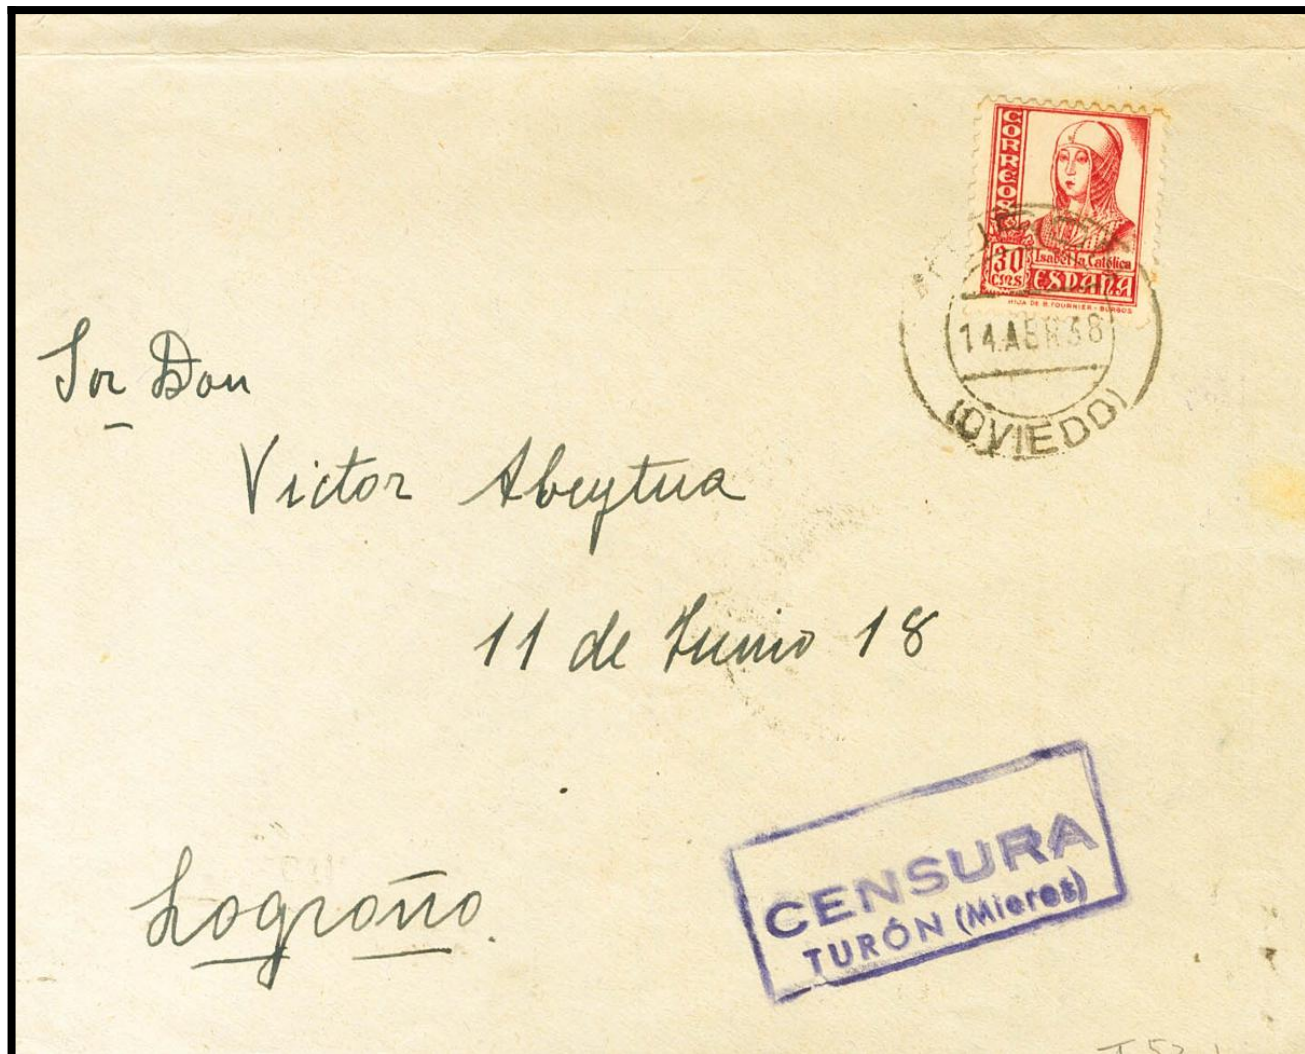 CORREOS
30 CMS
Isabel la Católica
ESPAÑA
HIJA DE B. FOURNIER - BURGOS
14 ABR 38
(OVIEDO)
Sor Don
Victor Abeytua
11 de Junio 18
Logroño.
CENSURA
TURÓN (Mieres)